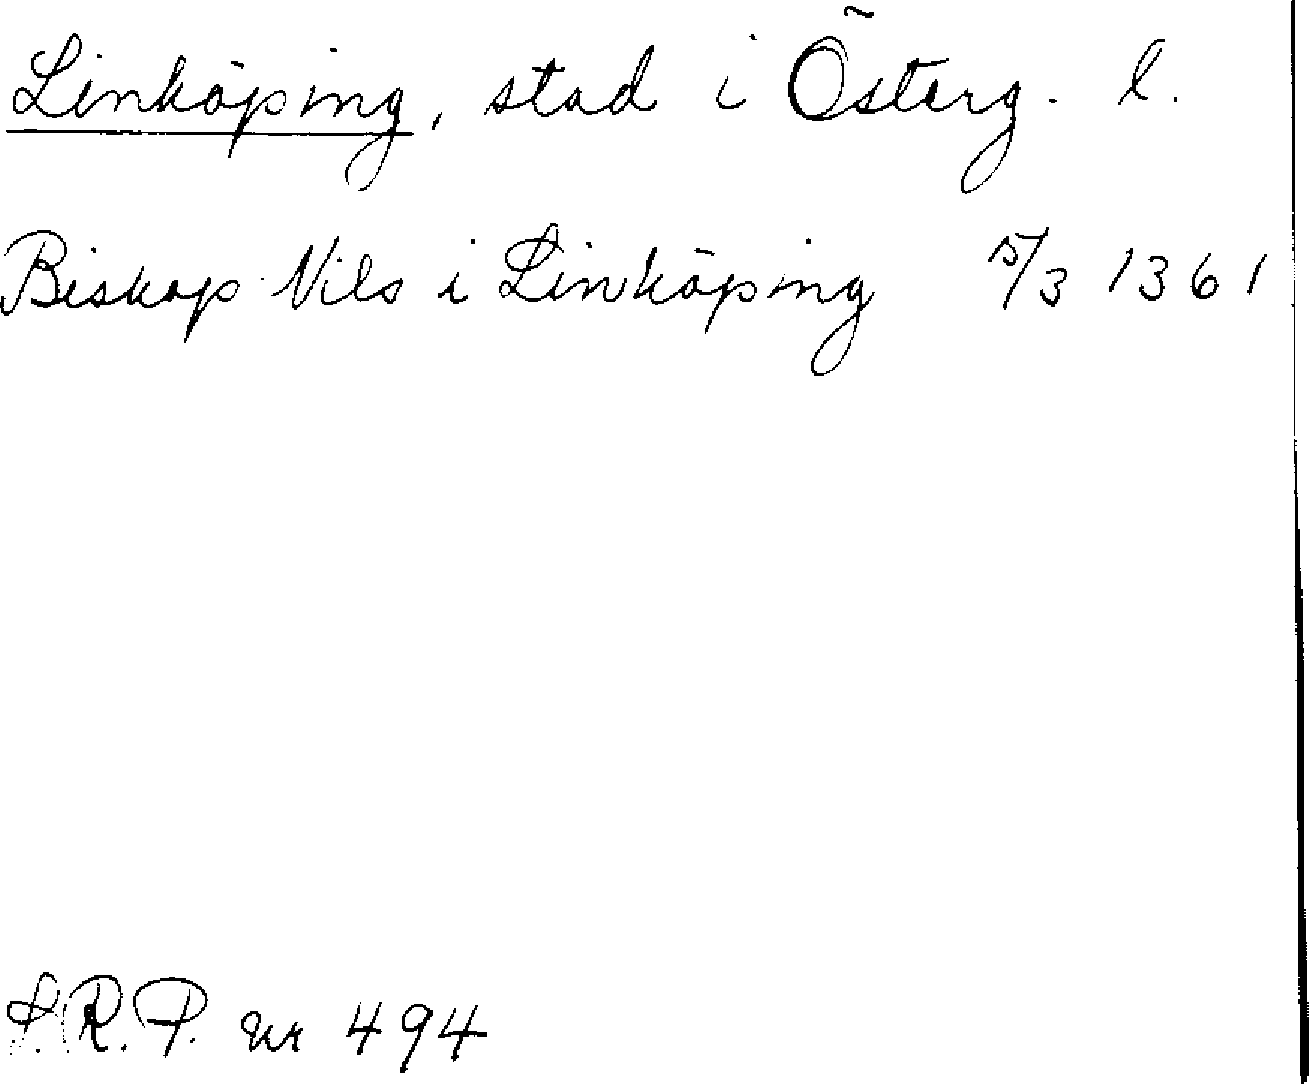 Linköping, stad i Österg. l.
Biskop Nils i Linköping 5/3 1361
S.R.P. nr 494